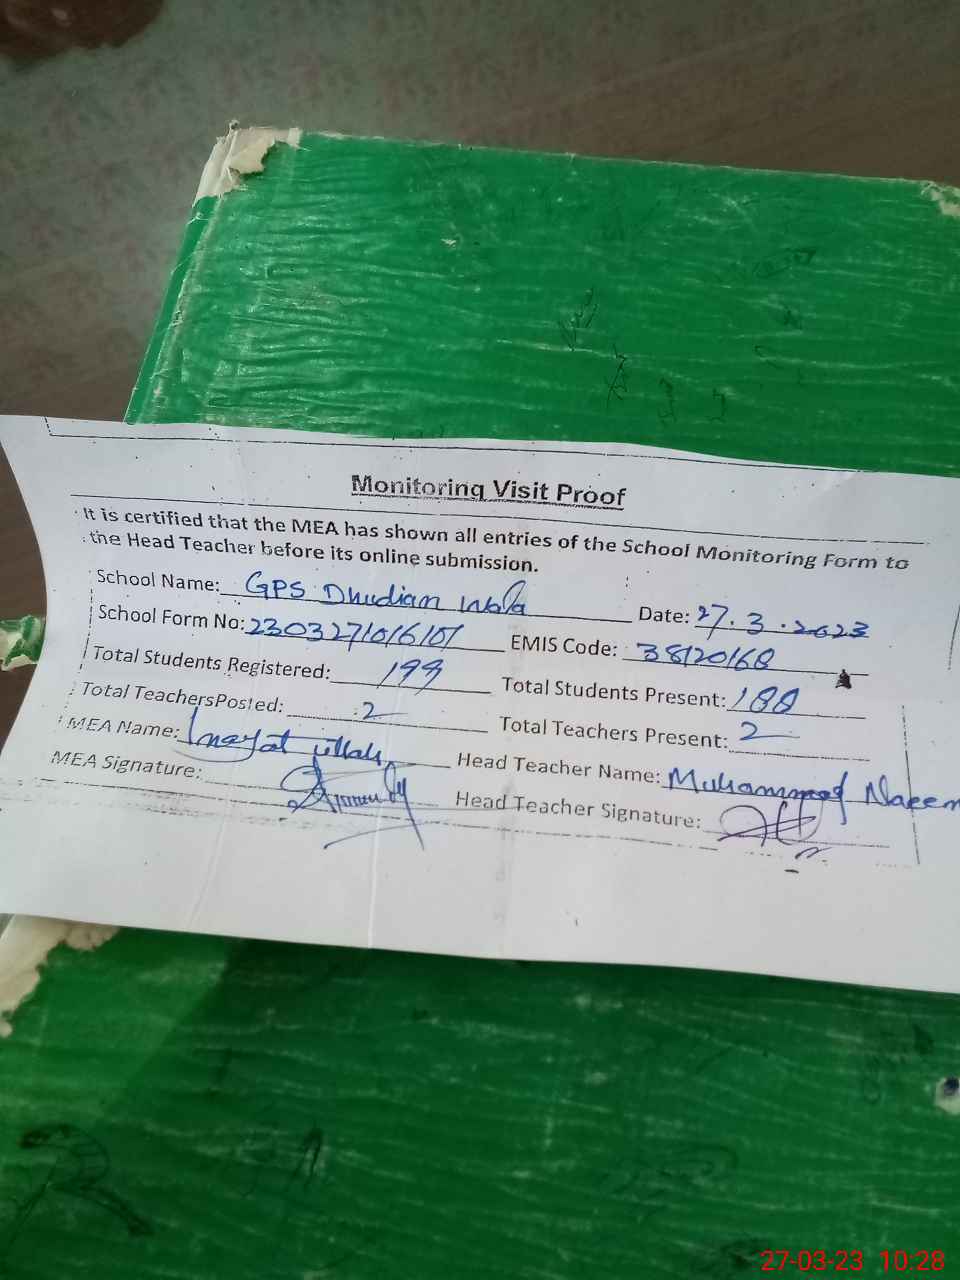 Monitoring Visit Proof
It is certified that the MEA has shown all entries of the School Monitoring Form to
the Head Teacher before its online submission.
School Name: GPS Dhudian Wala Date: 27.3.2023
School Form No: 2303271016101 EMIS Code: 38120168
Total Students Registered: 199 Total Students Present: 188
Total TeachersPosted: 2 Total Teachers Present: 2
MEA Name: Inayat ullah Head Teacher Name: Muhammad Naeem
MEA Signature: Head Teacher Signature:
27-03-23 10:28